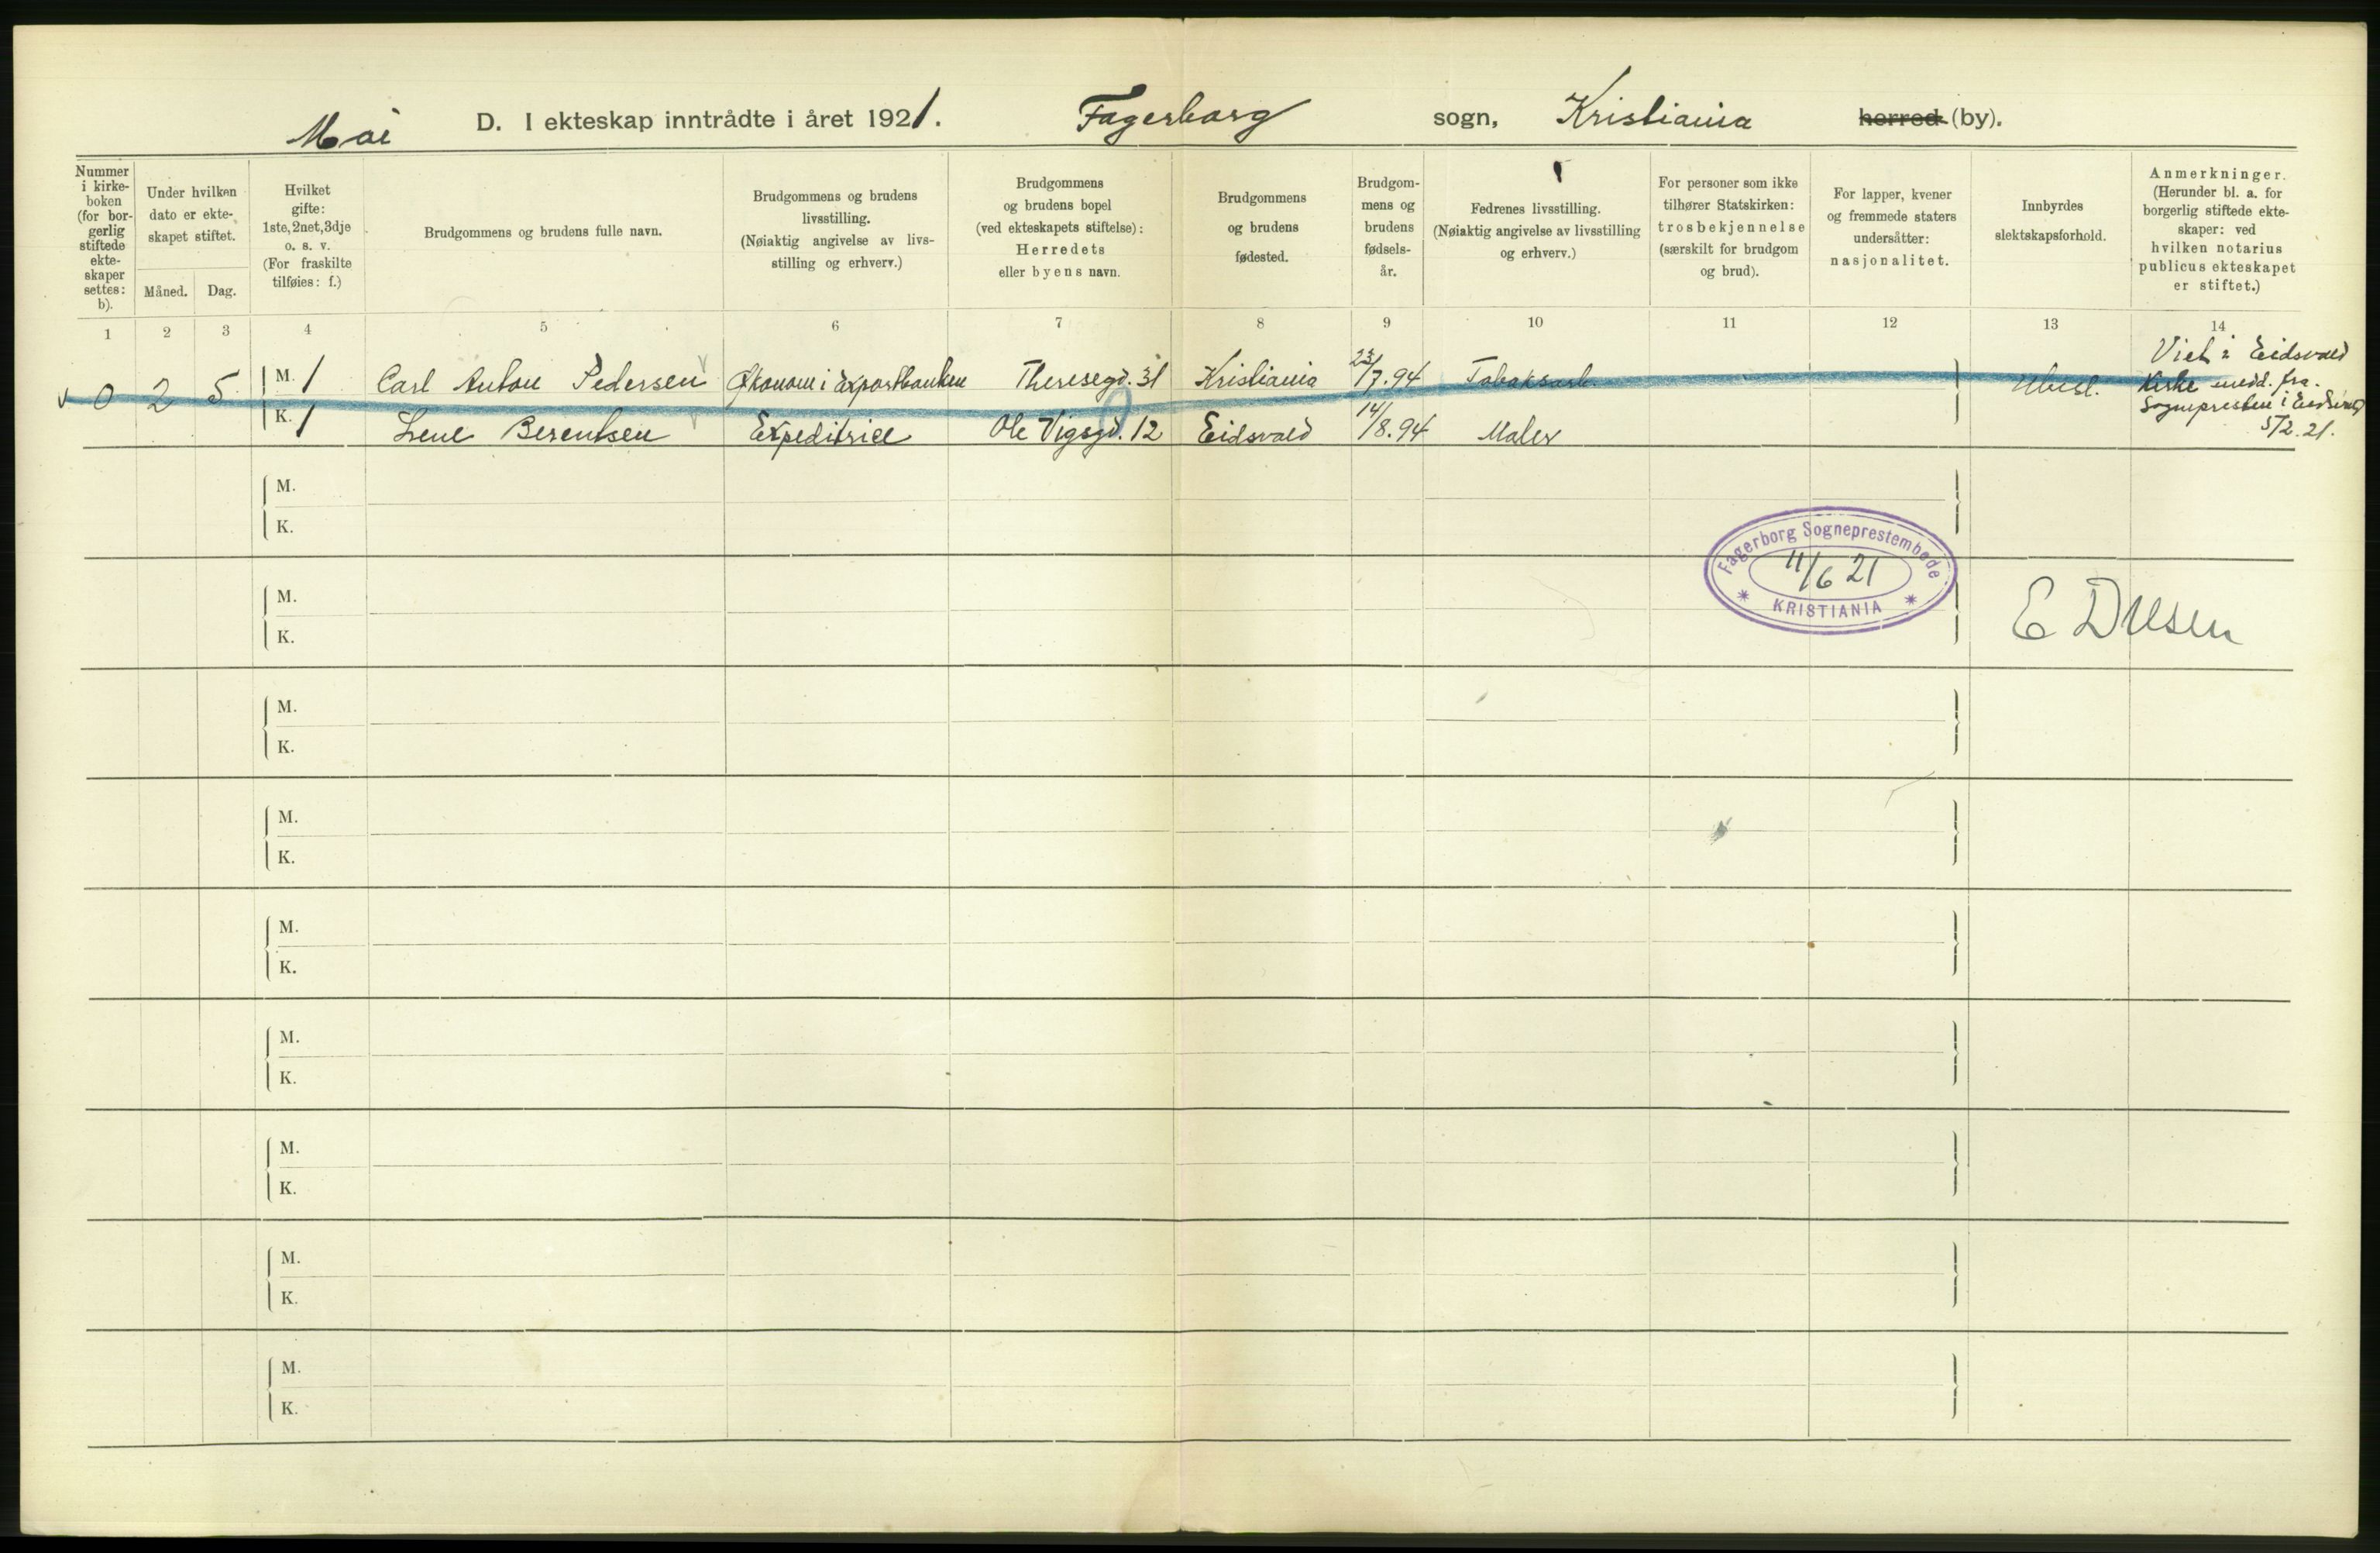 Mai D. I ekteskap inntrådte i året 1921. Fagerborg sogn, Kristiania herred (by).
Nummer i kirke- boken (for bor- gerlig stiftede ekte- skaper settes: b).
Under hvilken dato er ekte- skapet stiftet.
Måned. Dag.
Hvilket gifte: 1ste, 2net, 3dje o. s. v. (For fraskilte tilføies: f.)
Brudgommens og brudens fulle navn.
Brudgommens og brudens livsstilling. (Nøiaktig angivelse av livs- stilling og erhverv.)
Brudgommens og brudens bopel (ved ekteskapets stiftelse): Herredets eller byens navn.
Brudgommens og brudens fødested.
Brudgom- mens og brudens fødsels- år.
Fedrenes livsstilling. (Nøiaktig angivelse av livsstilling og erhverv.)
For personer som ikke tilhører Statskirken: trosbekjennelse (særskilt for brudgom og brud).
For lapper, kvener og fremmede staters undersåtter: nasjonalitet.
Innbyrdes slektskapsforhold.
Anmerkninger. (Herunder bl. a. for borgerlig stiftede ekte- skaper: ved hvilken notarius publicus ekteskapet er stiftet.)
1 2 3 4 5 6 7 8 9 10 11 12 13 14
0 2 5 M. 1 Carl Anton Pedersen Økonom i Exportbanken Theresegd. 31 Kristiania 23/7.94 Tobaksarb. Ubesl.
K. 1 Lene Berentsen Expeditrice Ole Vigsgd. 12 Eidsvold 14/8.94 Maler
Viet i Eidsvold
Kirke medd. fra
Sognepresten i Eidsvold
5/2.21.
M.
K.
Fagerborg Sogneprestembede
11/6 21
KRISTIANIA
M.
K.
M.
K.
M.
K.
M.
K.
M.
K.
M.
K.
M.
K.
M.
K.